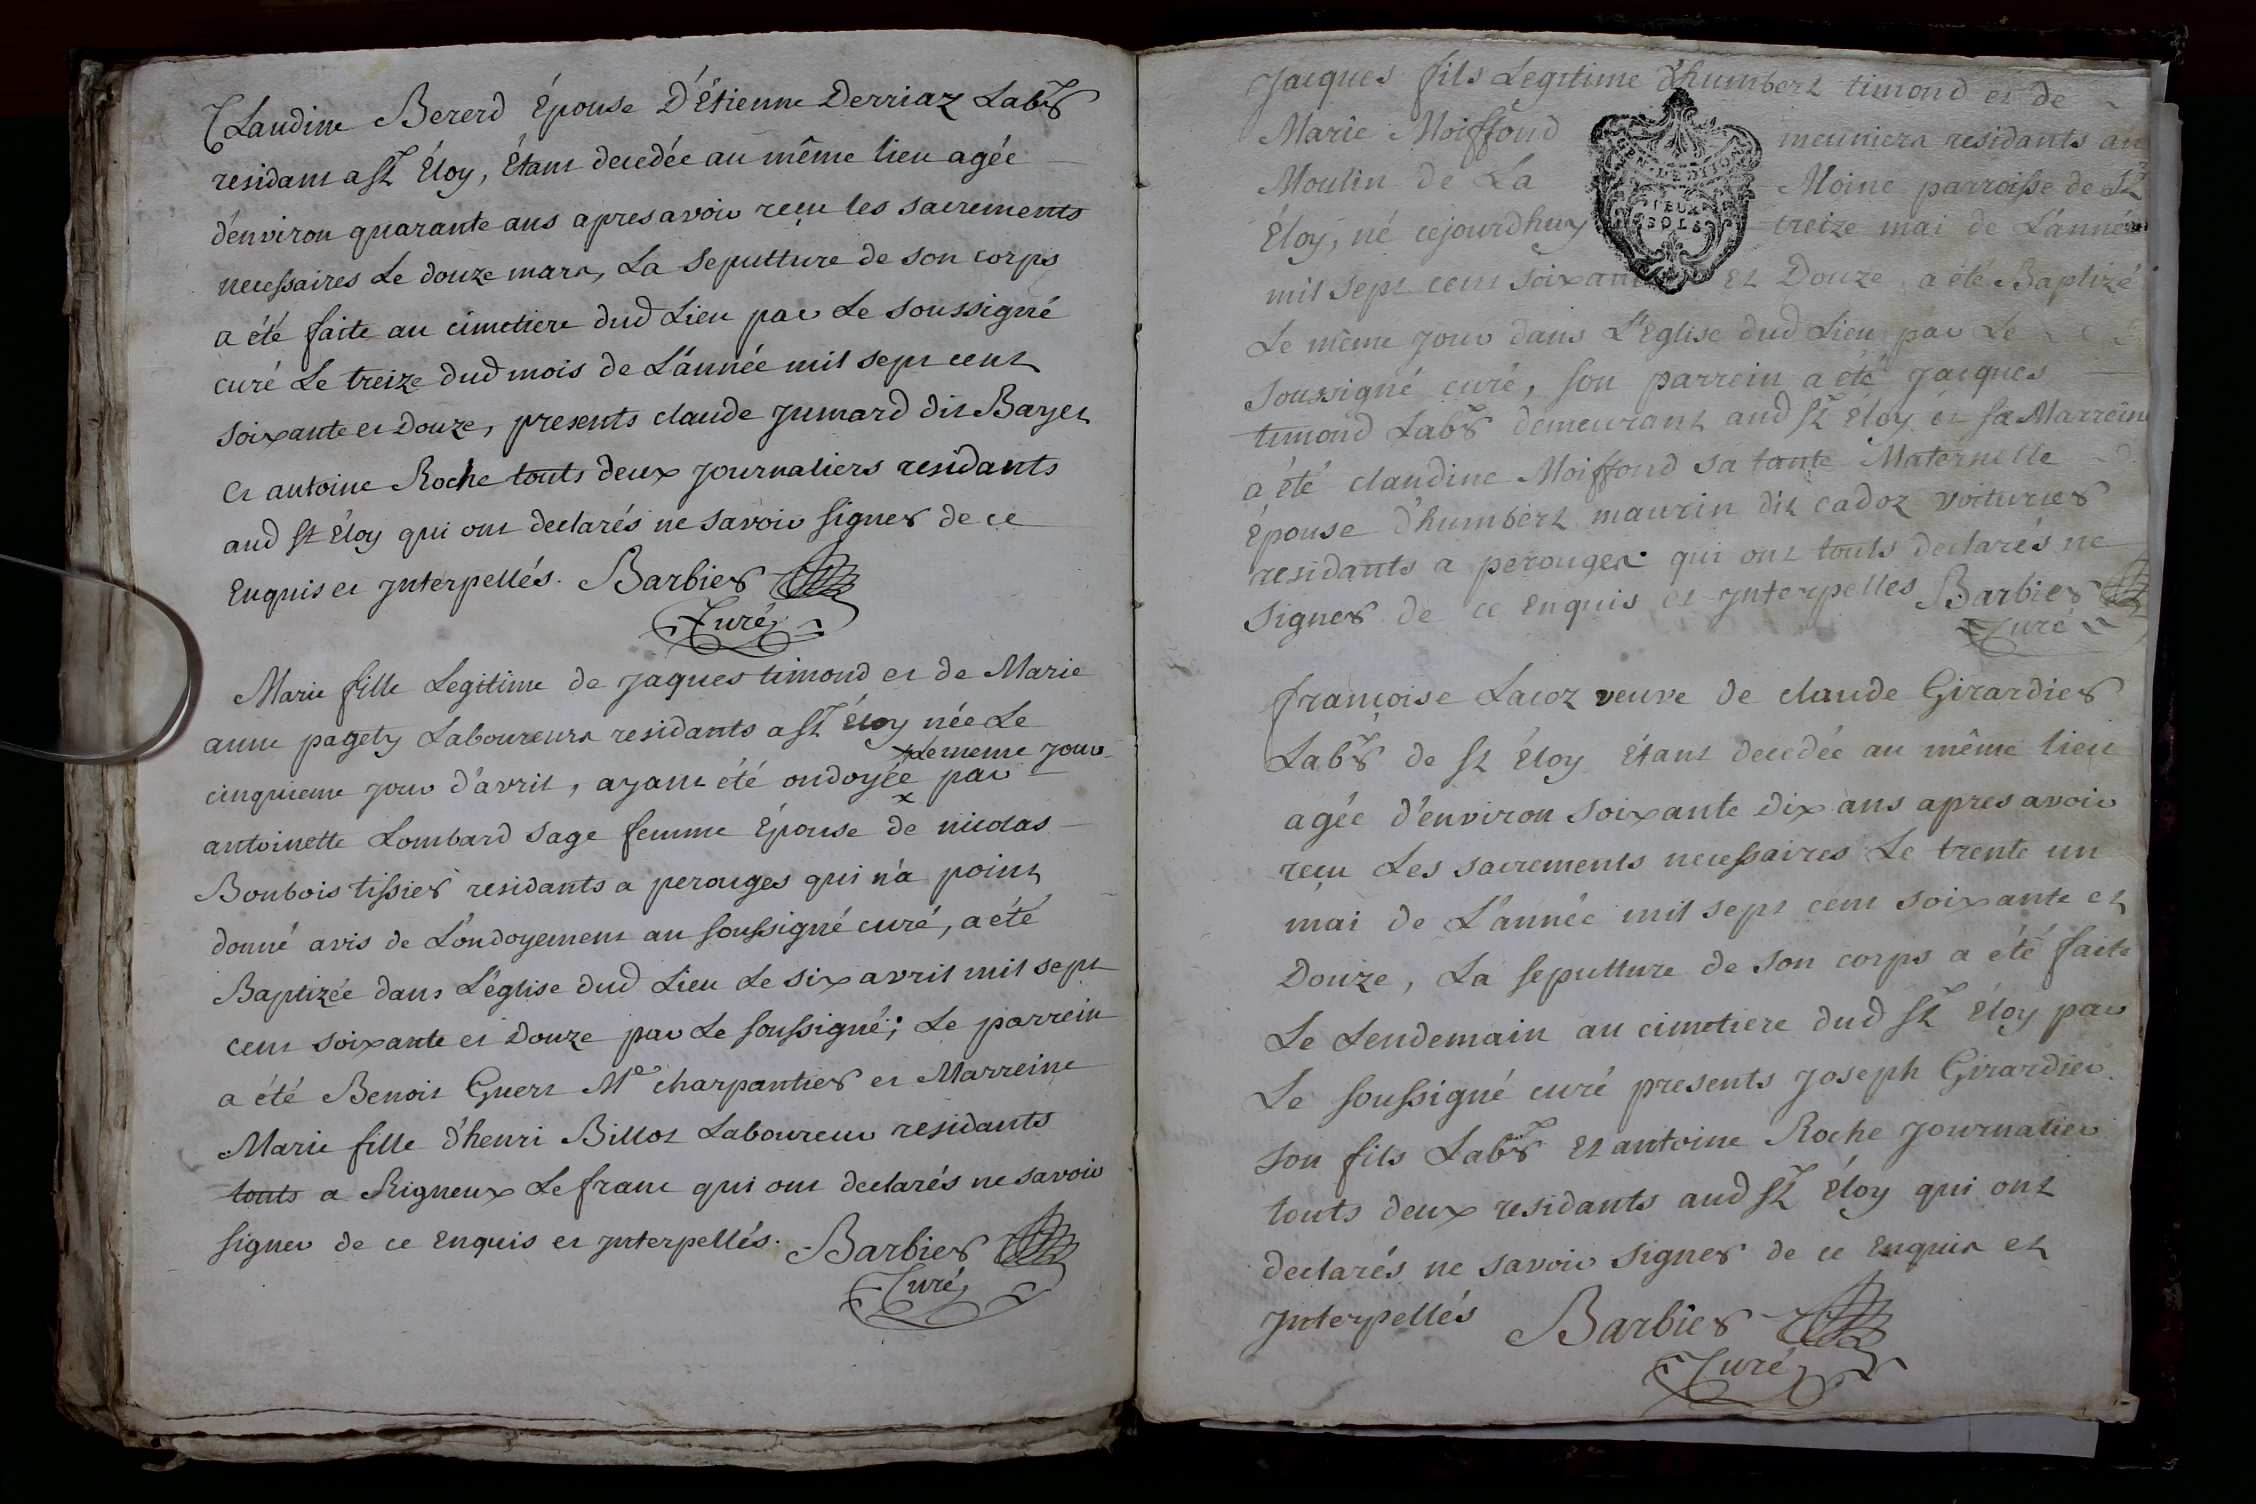 Claudine Bererd Épouse D'Étienne Derriaz Labr
residant a St Éloy, Étant decedée au même lieu agée
d'environ quarante ans apres avoir reçu les sacrements
necessaires Le douze mars, La seputture de son corps
a été faite au cimetiere dud Lieu par Le soussigné
curé Le treize dud mois de L'année mil sept cent
soixante et Douze, presents claude jumard dit Bayet
et antoine Roche touts deux journaliers residants
aud St Éloy qui ont declarés ne savoir signer de ce
Enquis et jnterpellés. Barbier
Curé
Marie fille Legitime de jaques timond et de Marie
anne pagety Laboureurs residants a St Éloy née Le
x Le meme jour
cinquieme jour d'avril, ayant été ondoyée x par
antoinette Lombard sage femme Épouse de nicolas
Boubois tissier residants a perouges qui n'a point
donné avis de L'ondoyement au soussigné curé, a été
Baptizée dans L'église dud Lieu Le six avril mil sept
cent soixante et Douze par Le soussigné; Le parrein
a été Benoit Guert Me charpantier et Marreine
Marie fille d'henri Billot Laboureur residants
touts a Rigneux Le franc qui ont declarés ne savoir
signer de ce Enquis et jnterpellés. Barbier
Curé
Jacques fils Legitime d'humbert timond et de
Marie Moiffond meuniers residants au
Moulin de La Moine parroisse de St
Éloy, né cejourdhuy treize mai de L'année
DEUX
SOLS
mil sept cent soixante Et Douze, a été Baptizé
Le même jour dans L'Église dud Lieu par Le
soussigné curé, son parrein a été jacques
timond Labr demeurant aud St Éloy et sa Marreine
a été claudine Moiffond sa tante Maternelle
Épouse d'humbert maurin dit cadoz voiturier
residants a perouges qui ont touts declarés ne
signer de ce enquis et jnterpellés Barbier
Curé
françoise Lacoz veuve de claude Girardier
Labr de St Éloy Étant decedée au même lieu
agée d'environ soixante Dix ans apres avoir
reçu Les sacrements necessaires Le trente un
mai de L'année mil sept cent soixante et
Douze, La seputture de son corps a été faite
Le Lendemain au cimetiere dud St Éloy par
Le soussigné curé presents joseph Girardier
son fils Labr Et antoine Roche journalier
touts deux residants aud St Éloy qui ont
declarés ne savoir signer de ce Enquis et
jnterpellés Barbier
Curé